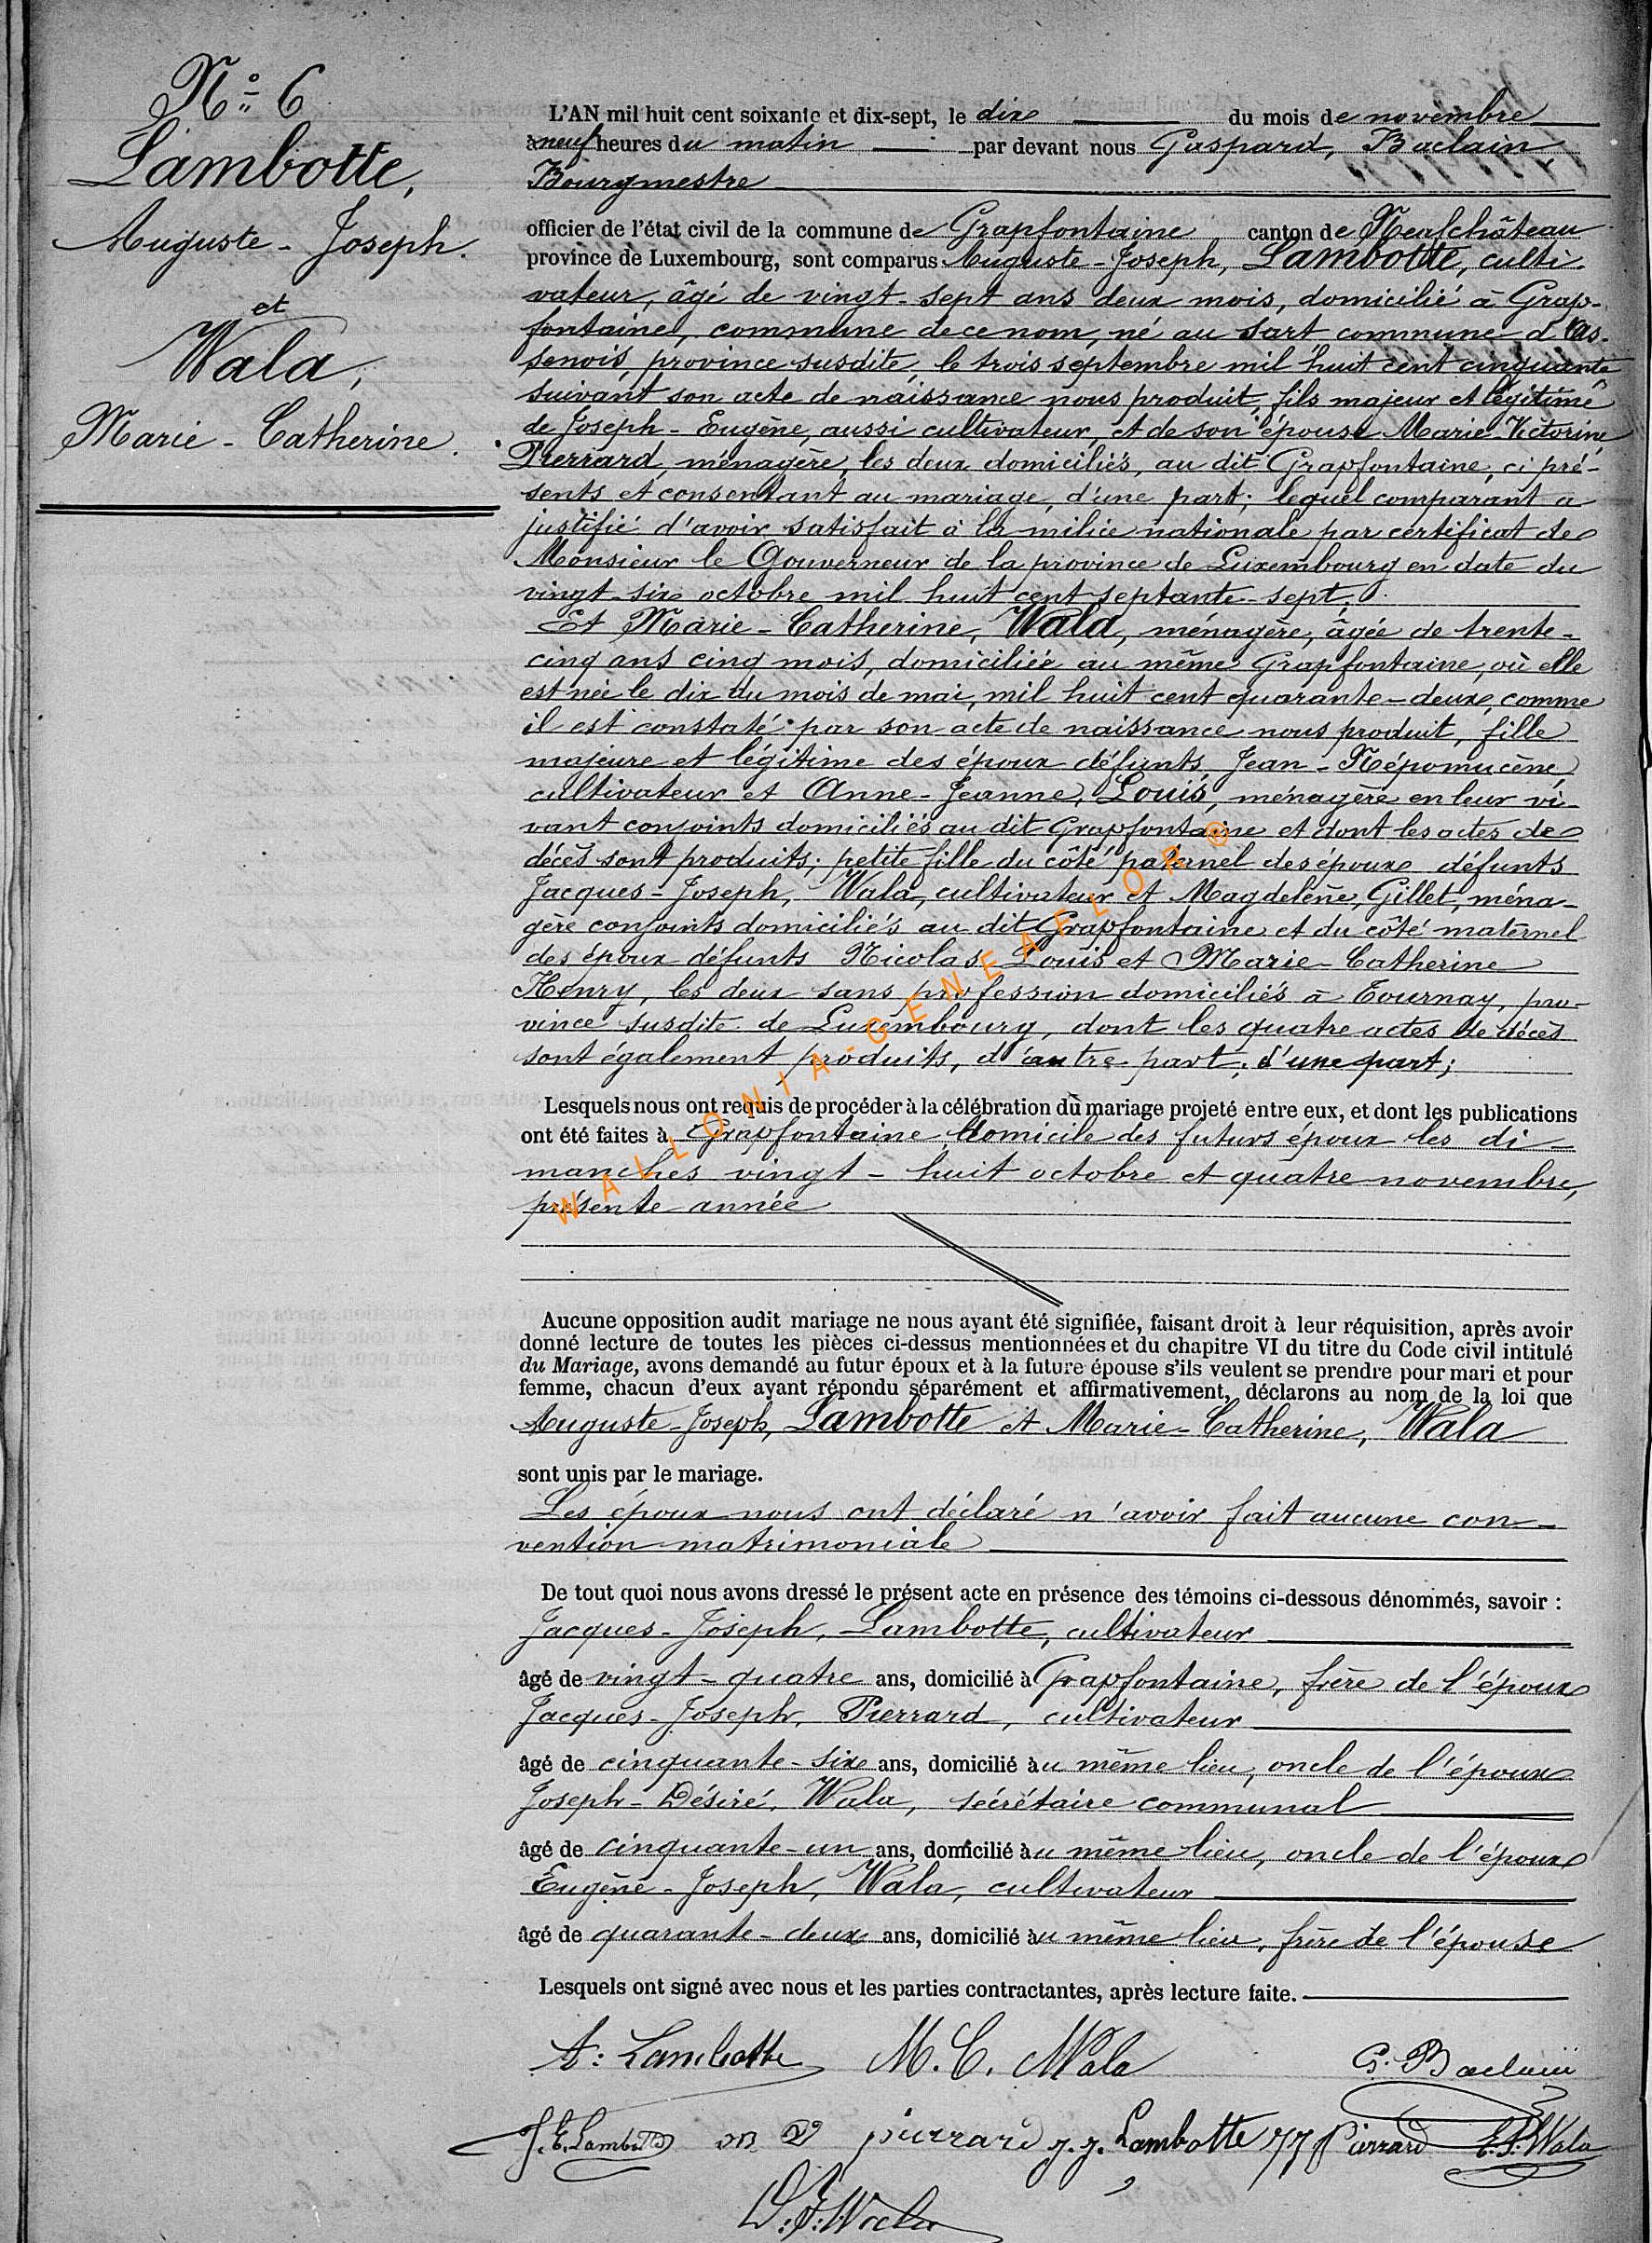 N° 6
Lambotte,
Auguste - Joseph.
et
Wala,
Marie - Catherine.
L'AN mil huit cent soixante et dix-sept, le dix du mois de novembre
à neuf heures du matin par devant nous Gaspard, Baclain,
Bourgmestre
officier de l'état civil de la commune de Grapfontaine canton de Neufchâteau
province de Luxembourg, sont comparus Auguste - Joseph, Lambotte, culti-
vateur, âgé de vingt-sept ans deux mois, domicilié à Grap-
fontaine, commune de ce nom, né au Sart commune d'As-
senois, province susdite, le trois septembre mil huit cent cinquante
suivant son acte de naissance nous produit, fils majeur et légitime
de Joseph - Eugène, aussi cultivateur et de son épouse Marie-Victorine
Pierrard, ménagère, les deux domiciliés, au dit Grapfontaine, ci pré-
sents et consentant au mariage, d'une part; lequel comparant a
justifié d'avoir satisfait à la milice nationale par certificat de
Monsieur le Gouverneur de la province de Luxembourg en date du
vingt-six octobre mil huit cent septante-sept.
Et Marie - Catherine, Wala, ménagère, âgée de trente-
cinq ans cinq mois, domiciliée au même Grapfontaine, où elle
est née le dix du mois de mai, mil huit cent quarante-deux, comme
il est constaté par son acte de naissance nous produit, fille
majeure et légitime des époux défunts Jean - Népomucène,
cultivateur et Anne-Jeanne, Louis, ménagère en leur vi-
vant conjoints domiciliés au dit Grapfontaine et dont les actes de
décès sont produits; petite fille du côté paternel des époux défunts
Jacques - Joseph, Wala, cultivateur et Magdelène, Gillet, ména-
gère conjoints domiciliés au dit Grapfontaine et du côté maternel
des époux défunts Nicolas Louis et Marie-Catherine
Henry, les deux sans profession domiciliés à Tournay, pro-
vince susdite de Luxembourg, dont les quatre actes de décès
sont également produits, d'autre part; d'une part;
Lesquels nous ont requis de procéder à la célébration du mariage projeté entre eux, et dont les publications
ont été faites à Grapfontaine, domicile des futurs époux les di-
manches vingt - huit octobre et quatre novembre,
présente année
WALLONIA-GENEAFLOR ®
Aucune opposition audit mariage ne nous ayant été signifiée, faisant droit à leur réquisition, après avoir
donné lecture de toutes les pièces ci-dessus mentionnées et du chapitre VI du titre du Code civil intitulé
du Mariage, avons demandé au futur époux et à la future épouse s'ils veulent se prendre pour mari et pour
femme, chacun d'eux ayant répondu séparément et affirmativement, déclarons au nom de la loi que
Auguste-Joseph, Lambotte et Marie-Catherine, Wala
sont unis par le mariage.
Les époux nous ont déclaré n'avoir fait aucune con-
vention matrimoniale
De tout quoi nous avons dressé le présent acte en présence des témoins ci-dessous dénommés, savoir :
Jacques - Joseph, Lambotte, cultivateur
âgé de vingt-quatre ans, domicilié à Grapfontaine, frère de l'époux
Jacques - Joseph, Pierrard, cultivateur
âgé de cinquante-six ans, domicilié au même lieu, oncle de l'époux
Joseph - Désiré, Wala, sécrétaire communal
âgé de cinquante-un ans, domicilié au même lieu, oncle de l'époux
Eugène - Joseph, Wala, cultivateur
âgé de quarante-deux ans, domicilié au même lieu, frère de l'épouse
Lesquels ont signé avec nous et les parties contractantes, après lecture faite.
A: Lambotte M. C. Wala G. Baclain
J. E. Lambotte m v pierrard J. J. Lambotte J J Pierrard E. J. Wala
D. J. Wala